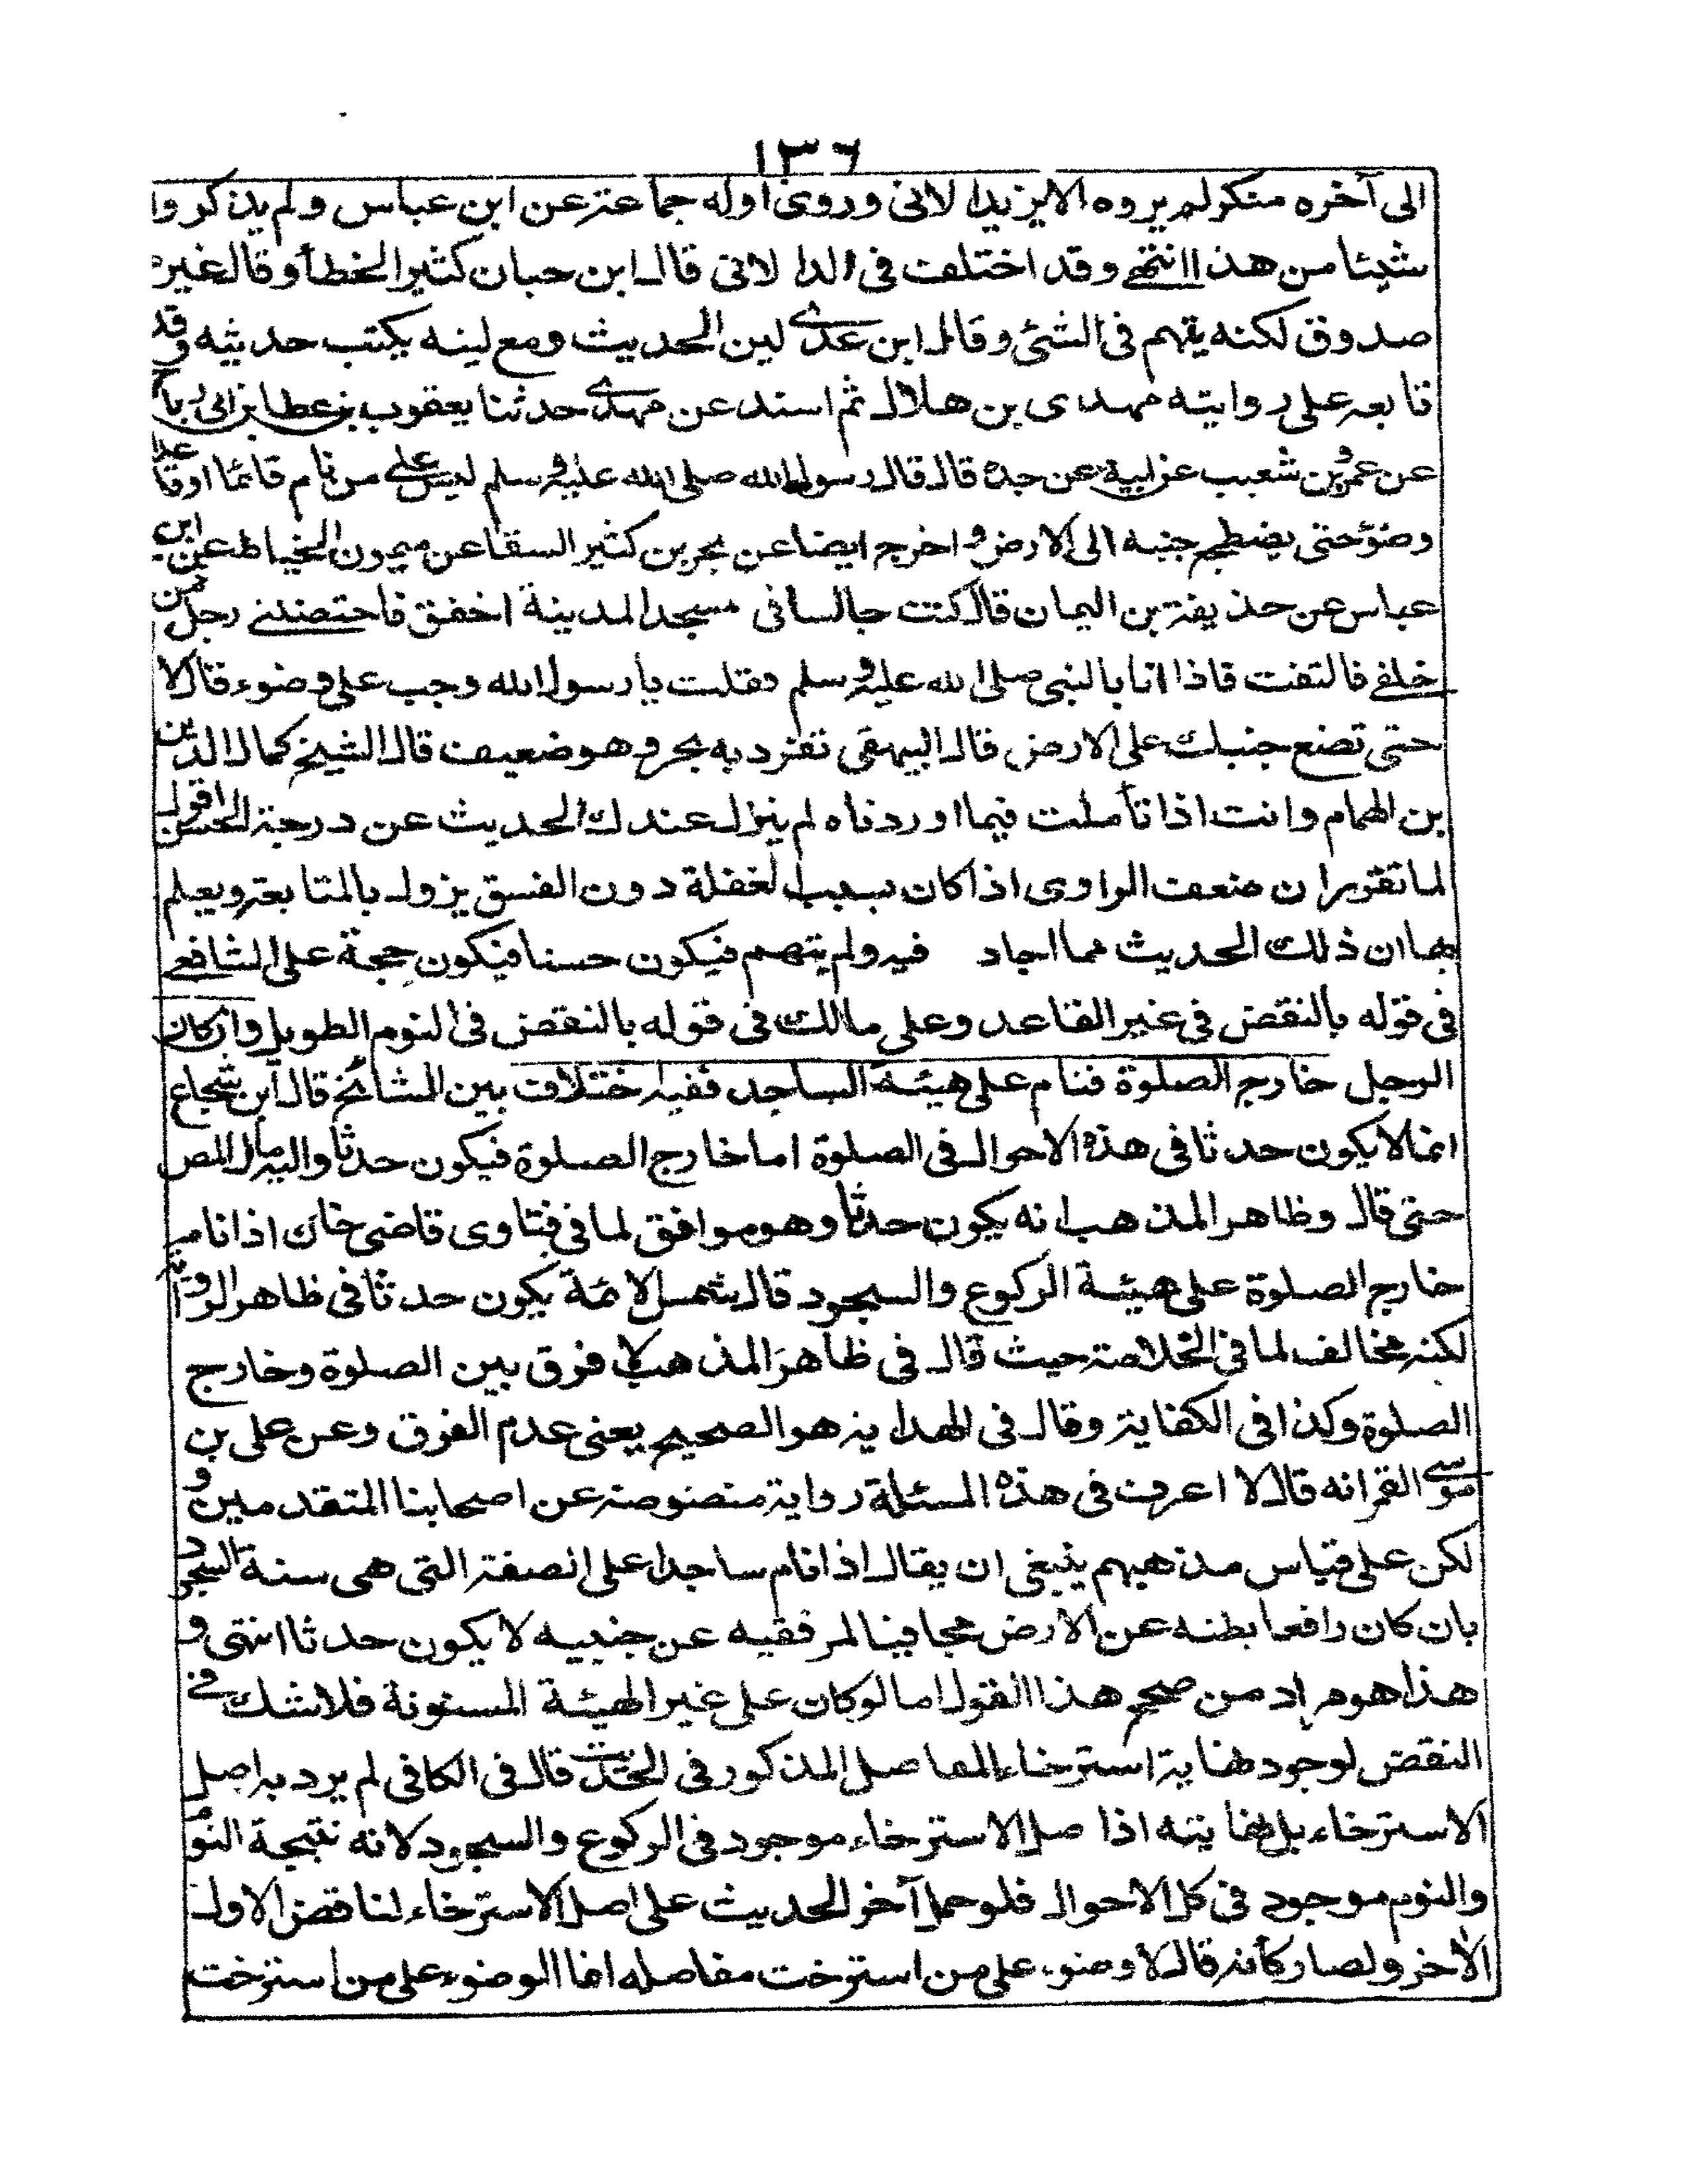 ١٣٦
الى آخره منكر لم يروه الا يزيد الدالانى وروى اوله جماعة عن ابن عباس ولم يذكروا
شيئا من هذا انتهى وقد اختلف فى الدالانى قال ابن حبان كثير الخطأ وقال غيره
صدوق لكنه يهم فى الشئ وقال ابن عدى لين الحديث ومع لينه يكتب حديثه وقد
تابعه على روايته مهدى بن هلال ثم اسند عن مهدى حدثنا يعقوب بن عطا بن ابى رباح
عن عمرو بن شعيب عن ابيه عن جده قال قال رسول الله صلى الله عليه وسلم ليس على من نام قائما او قاعدا
وضؤ حتى يضطجع جنبه الى الارض واخرج ايضا عن بحر بن كثير السقا عن ميمون الخياط عن ابن
عباس عن حذيفة بن اليمان قال كنت جالسا فى مسجد المدينة اخفق فاحتضننى رجل من
خلفى فالتفت فاذا انا بالنبى صلى الله عليه وسلم فقلت يا رسول الله وجب على وضوء قال لا
حتى تضع جنبك على الارض قال البيهقى تفرد به بحر وهو ضعيف قال الشيخ كمال الدين
بن الهمام وانت اذا تأملت فيما اوردناه لم ينزل عندك الحديث عن درجة الحسن اقول
لما تقرر ان ضعف الراوى اذا كان بسبب الغفلة دون الفسق يزول بالمتابعة ويعلم
بها ان ذلك الحديث مما اجاد فيه ولم يتهم فيكون حسنا فيكون حجة على الشافعى
فى قوله بالنقض فى غير القاعد وعلى مالك فى قوله بالنقض فى النوم الطويل وان كان
الرجل خارج الصلوة فنام على هيئة الساجد ففيه اختلاف بين المشائخ قال ابن شجاع
انما لا يكون حدثا فى هذه الاحوال فى الصلوة اما خارج الصلوة فيكون حدثا واليه مال المص
حتى قال وظاهر المذهب انه يكون حدثا وهو موافق لما فى فتاوى قاضى خان اذا نام
خارج الصلوة على هيئة الركوع والسجود قال شمس الائمة يكون حدثا فى ظاهر الرواية
لكنه مخالف لما فى الخلاصة حيث قال فى ظاهر المذهب لا فرق بين الصلوة وخارج
الصلوة وكذا فى الكفاية وقال فى الهداية هو الصحيح يعنى عدم الفرق وعن على بن
موسى القمى انه قال لا اعرف فى هذه المسئلة رواية منصوصة عن اصحابنا المتقدمين و
لكن على قياس مذهبهم ينبغى ان يقال اذا نام ساجدا على الصفة التى هى سنة السجود
بان كان رافعا بطنه عن الارض مجافيا لمرفقيه عن جنبيه لا يكون حدثا انتهى و
هذا هو مراد من صحح هذا القول اما لو كان على غير الهيئة المسنونة فلا شك فى
النقض لوجود نهاية استرخاء المفاصل المذكور فى الحديث قال فى الكافى لم يرد به اصل
الاسترخاء بل نهايته اذا صل الاسترخاء موجود فى الركوع والسجود لانه نتيجة النوم
والنوم موجود فى كل الاحوال فلو حمل آخر الحديث على اصل الاسترخاء لناقض الاول
الاخر ولصار كأنه قال لا وضوء على من استرخت مفاصله انما الوضوء على من استرخت